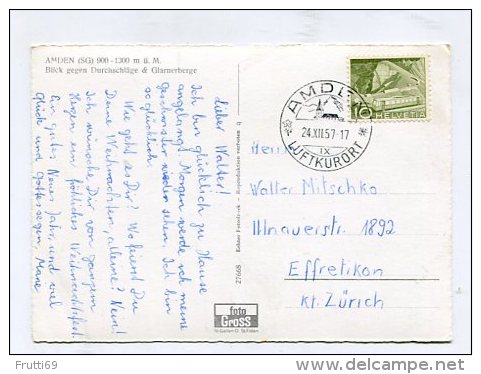 AMDEN (SG) 900-1300 m ü. M.
Blick gegen Durchschläge & Glarnerberge
Lieber Walter!
Ich bin glücklich zu Hause
angelangt. Morgen werde noch meine
Geschwister wieder sehen. Ich bin
so glücklich.
Wie geht es Dir? Wo feierst Du
Deine Weihnachten, alleine? Nein!
Ich wünsche Dir von ganzem
Herzen ein fröhliches Weihnachtsfest.
Ein gutes Neues Jahr, und viel
Glück und Gottes segen,
27668
foto
GROSS
St. Gallen
AMDEN
24.XII.57-17
IX
LUFTKURORT
10
HELVETIA
Walter Mitschko
Illnauerstr. 1892
Effretikon
Kt. Zürich
Frutti69
www.delcampe.net